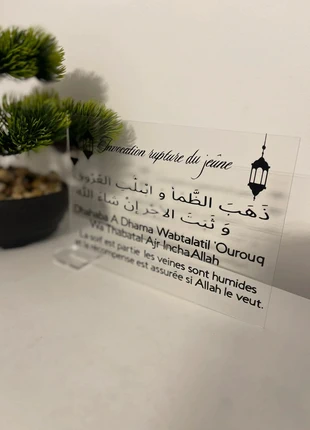 Invocation rupture du jeûne
ذَهَبَ الظَّمَأُ وَ ابْتَلَّتِ الْعُرُوقُ
وَ ثَبَتَ الأَجْرُ إِنْ شَاءَ اللَّه
Dhahaba A Dhama Wabtalatil 'Ourouq
Wa Thabatal Ajr InchaAllah
La soif est partie les veines sont humides
et la récompense est assurée si Allah le veut.